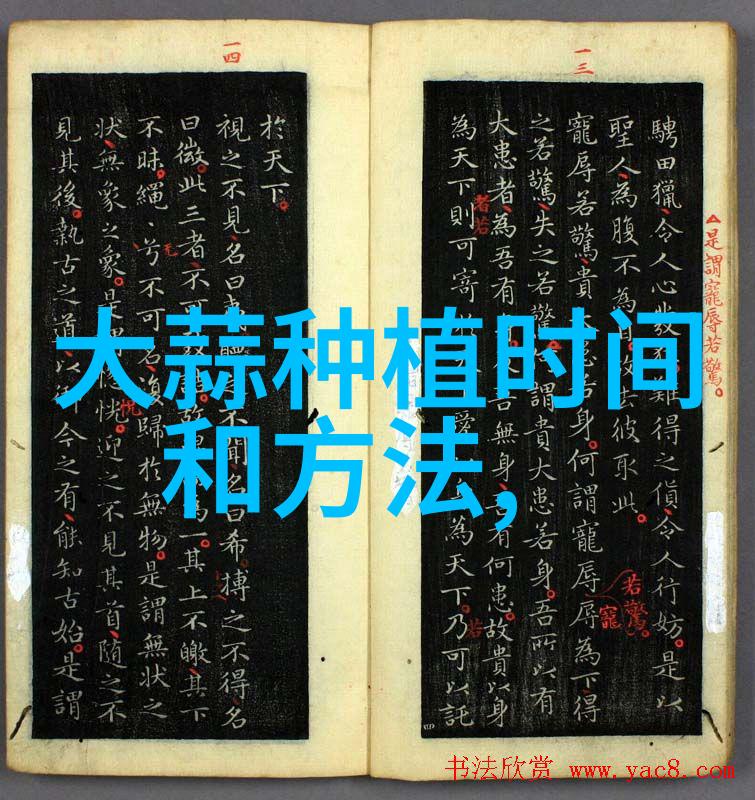 大蒜种植时间
和方法,
一三
△是謂寵辱若驚。
騁田獵令人心發難得之貨令人行妨是以
聖人為腹不為目故去彼取此
寵辱若驚貴身何謂寵辱辱為下得
之若驚失之若驚謂貴大患若身吾所以有
大患者為吾有吾無身吾有何患故貴以身
為天下則可寄為天下乃可以託
者若
若驚
寵
若
一四
於天下
視之不見名曰夷聽不聞名曰希搏之不得名
曰微此三者不可致故為一其上不皦其下
不昧繩〻兮不可名復歸於無物是謂無狀之
狀無象之象是謂恍迎之不見其首隨之不
見其後執古之道以御今之有能知古始是謂
书法欣赏 www.yac8.com